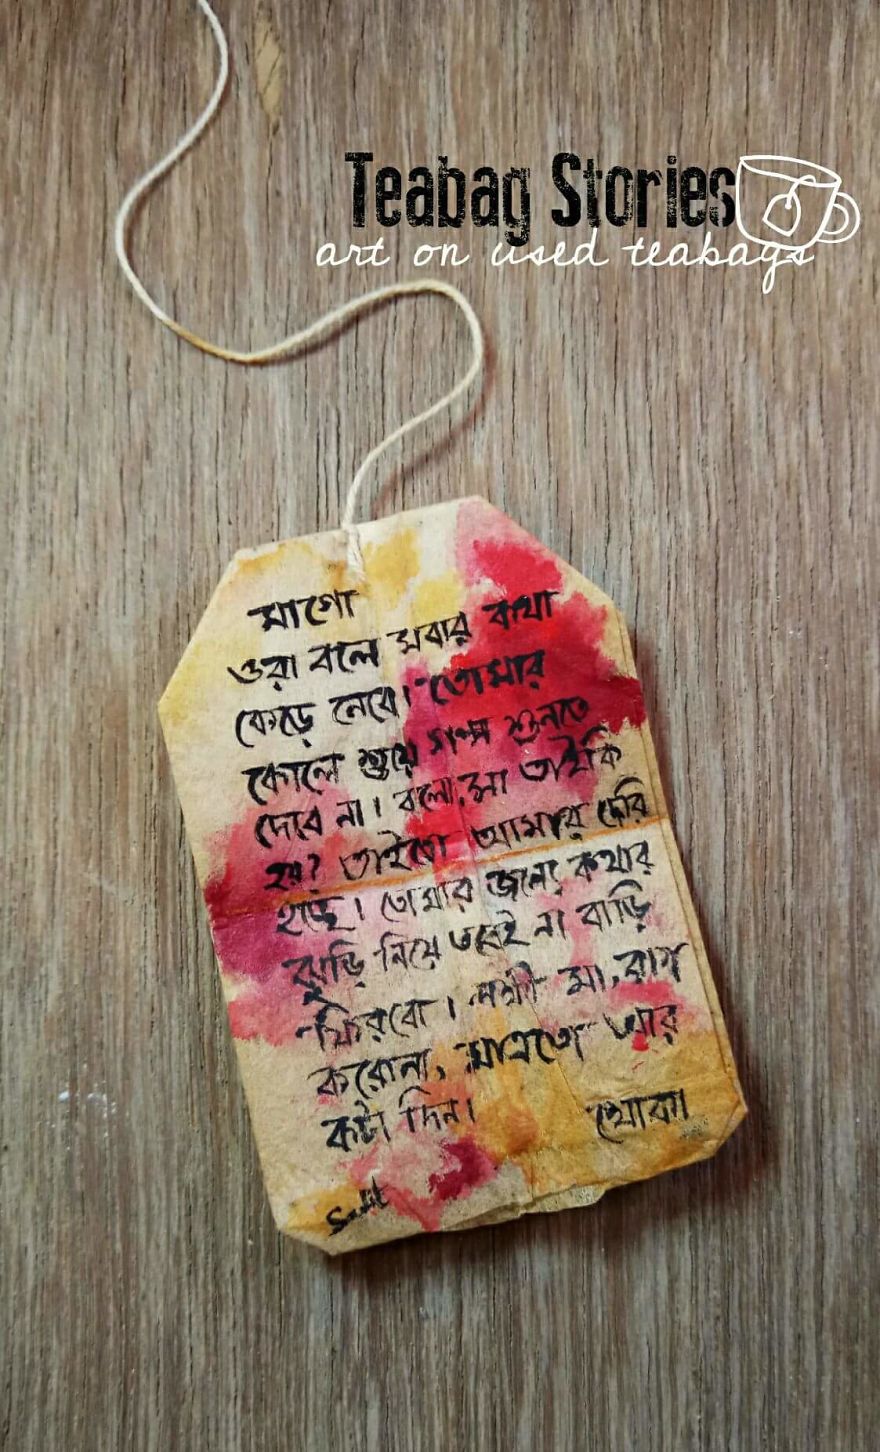 Teabag Stories
art on used teabags
মাগো
ওরা বলে সবার কথা
কেড়ে নেবে। তোমার
কোলে শুয়ে গল্প শুনতে
দেবে না। বলো, মা তাইকি
হয়? তাইতো আমার দেরি
হচ্ছে। তোমার জন্যে কথার
ঝুড়ি নিয়ে তবেই না বাড়ি
ফিরবো। লক্ষী মা, রাগ
করোনা, মাত্রতো আর
কটা দিন।
খোকা